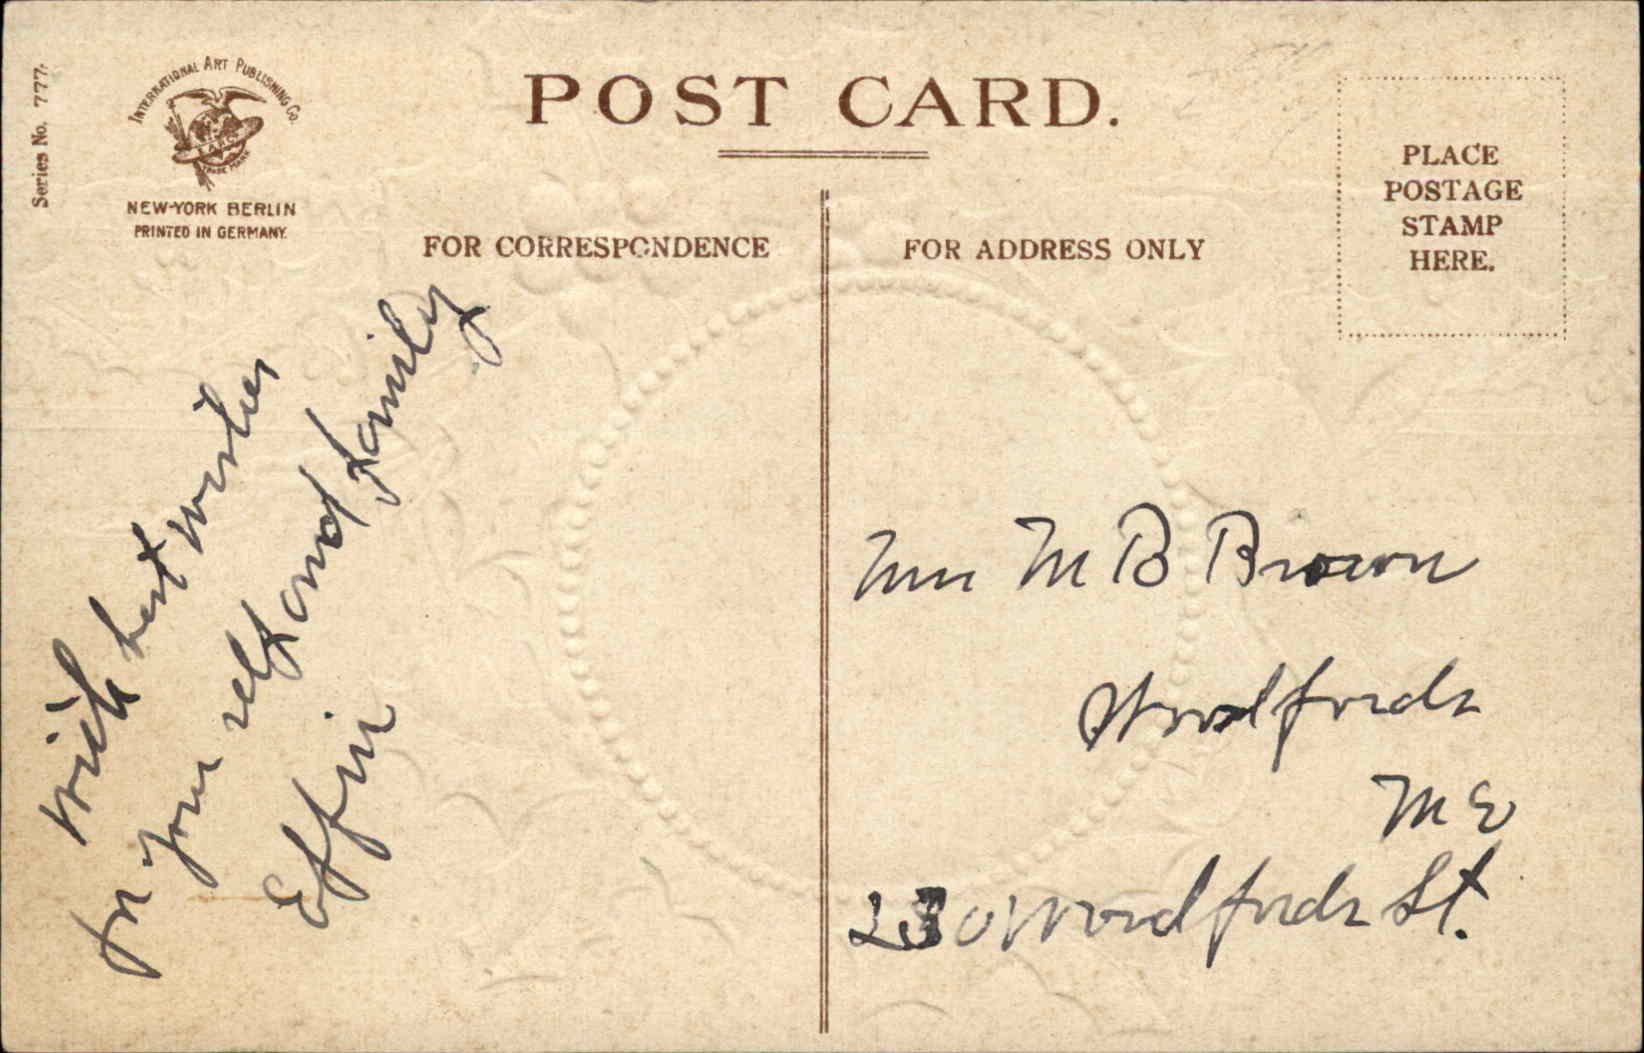 Series No. 777.
INTERNATIONAL ART PUBLISHING Co.
TRADE MARK
NEW-YORK BERLIN
PRINTED IN GERMANY.
POST CARD.
PLACE
POSTAGE
STAMP
HERE.
FOR CORRESPONDENCE
FOR ADDRESS ONLY
With best wishes
for your self and family
Effie
Mrs M B Brown
Woodfords
ME
230 Woodfords St.